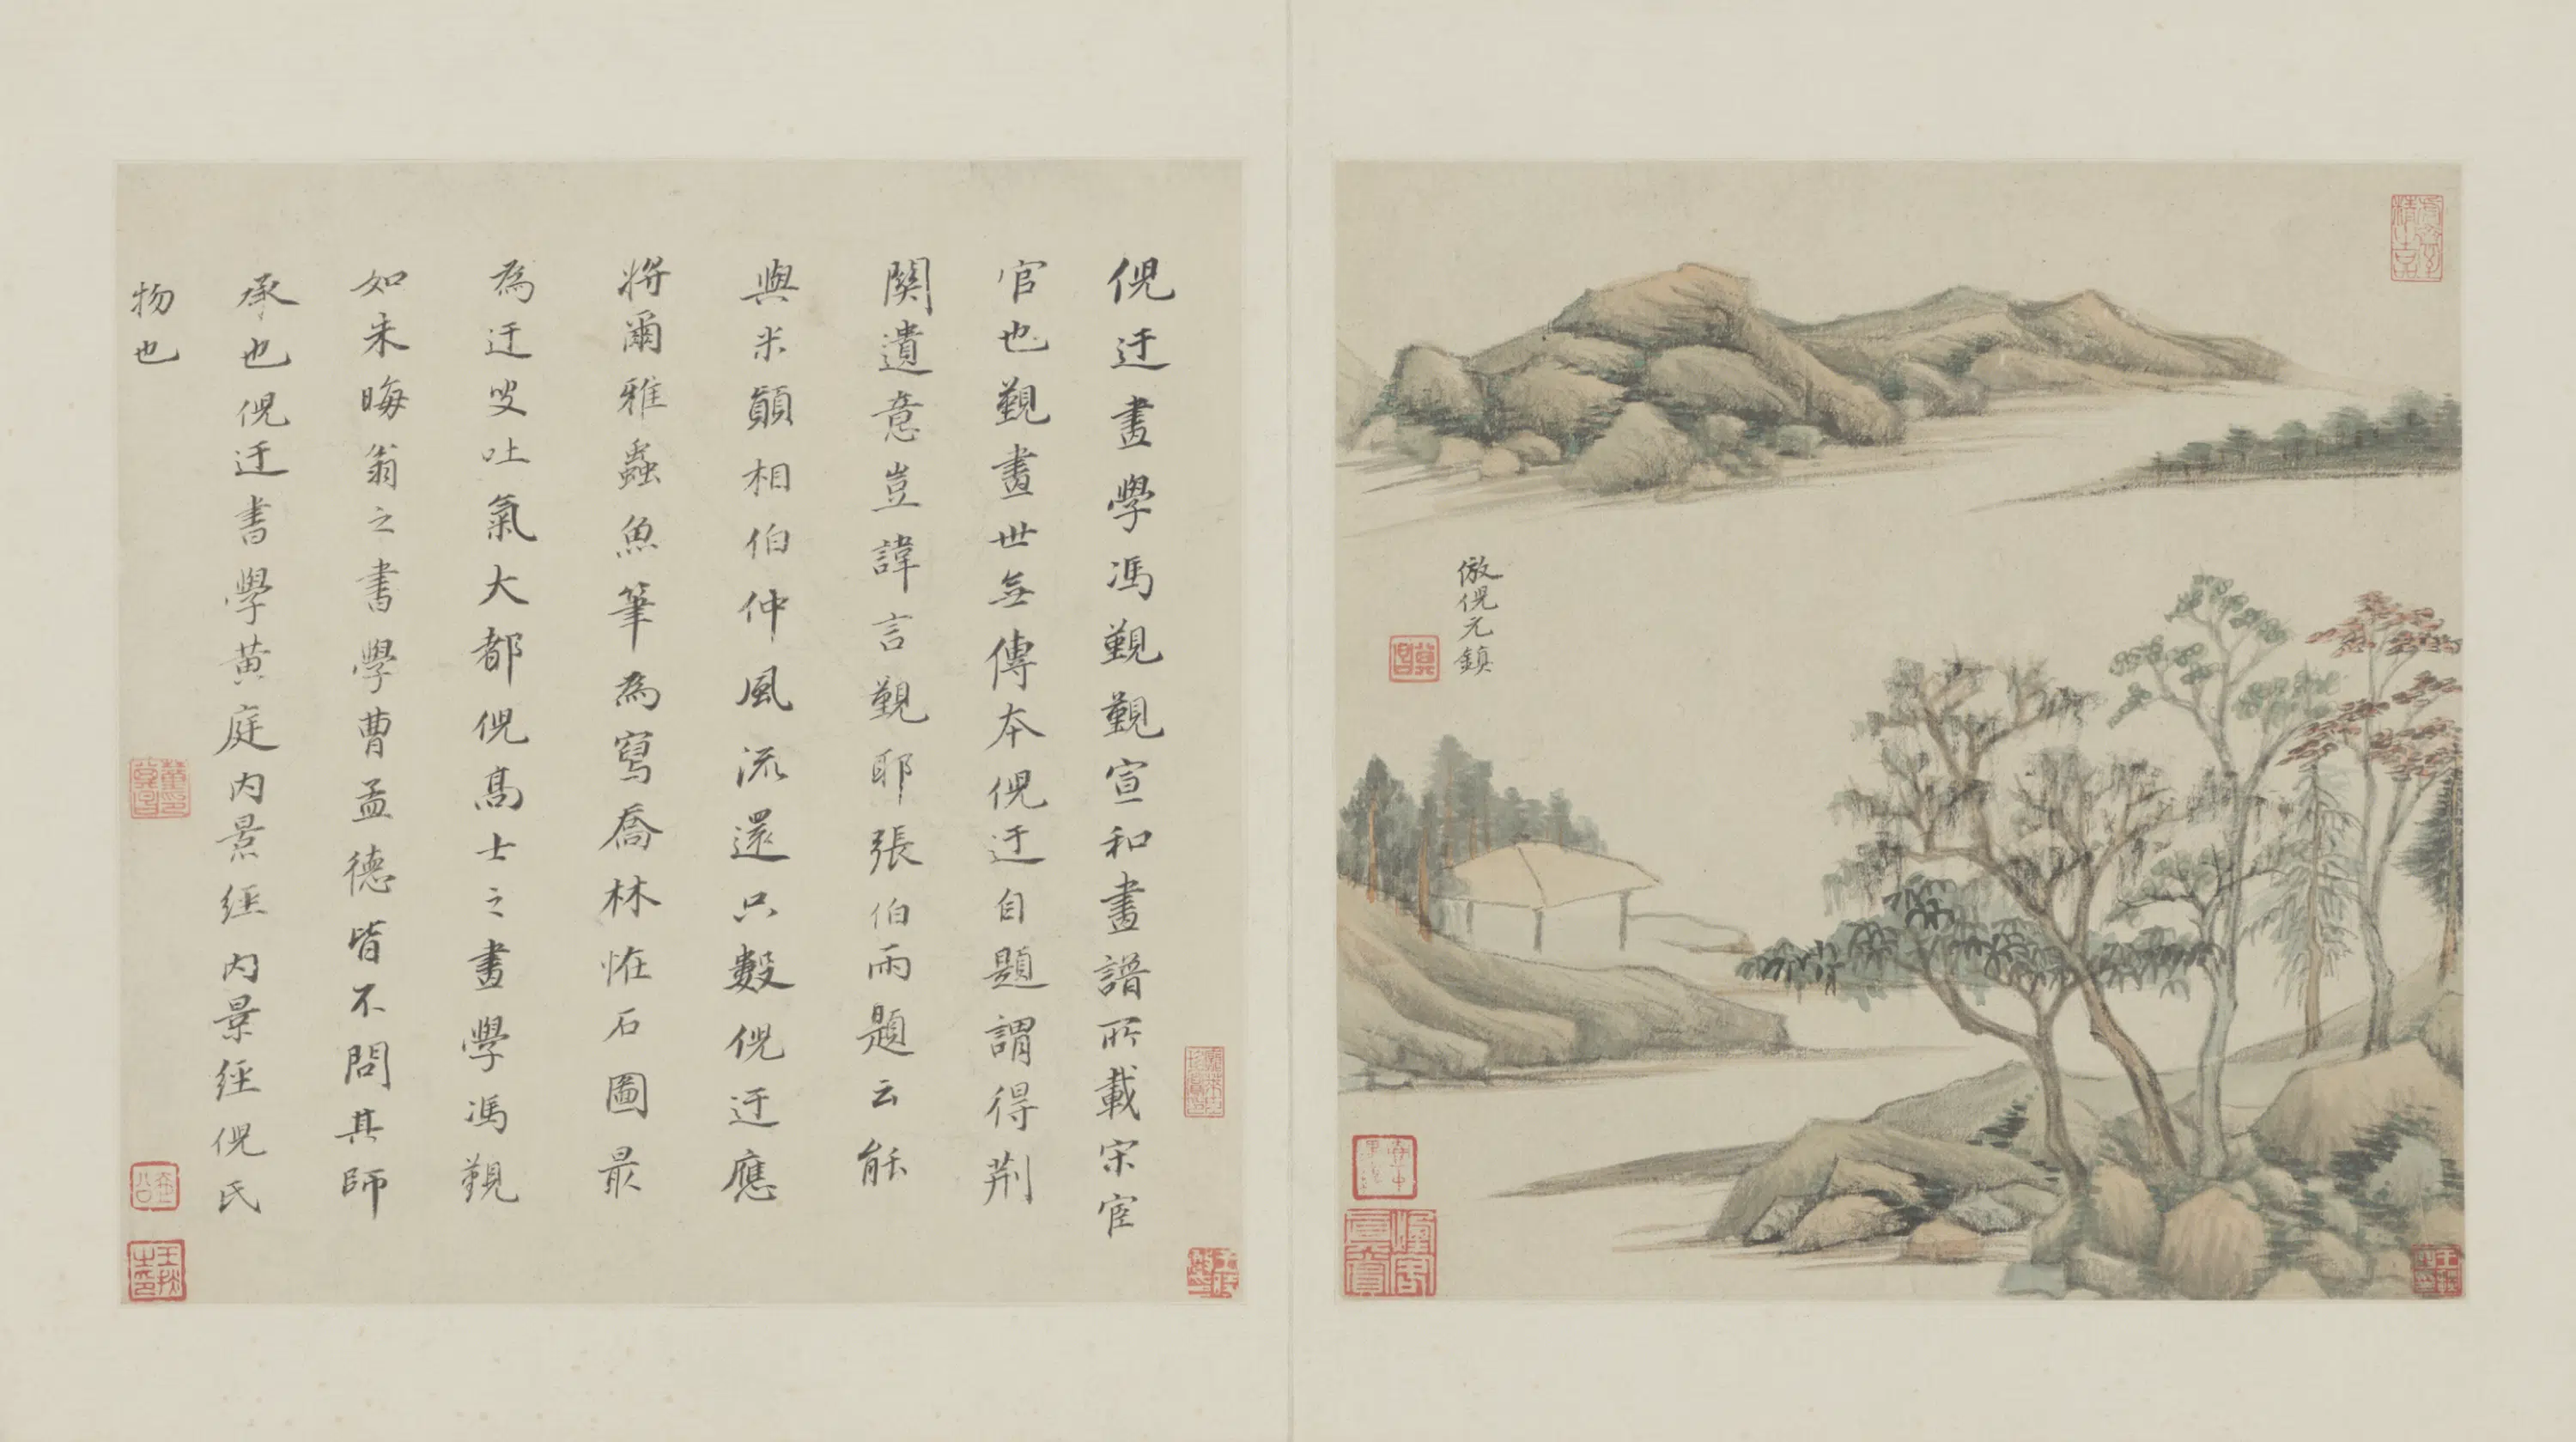 倣倪元鎮
倪迂畫學馮覲覲宣和畫譜所載宋宦
官也覲畫世無傳本倪迂自題謂得荊
關遺意豈諱言覲耶張伯雨題云能
與米顛相伯仲風流還只數倪迂應
將爾雅蟲魚筆為寫喬林恠石圖最
為迂叟吐氣大都倪高士之畫學馮覲
如朱晦翁之書學曹孟德皆不問其師
承也倪迂書學黃庭內景經內景經倪氏
物也